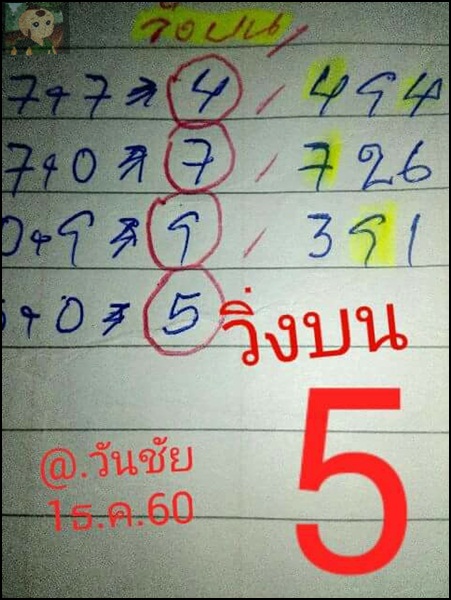 วิ่งบน
7+7 => 4 / 494
7+0 => 7 / 726
0+9 => 9 / 391
+0 => 5 วิ่งบน
5
@.วันชัย
1ธ.ค.60